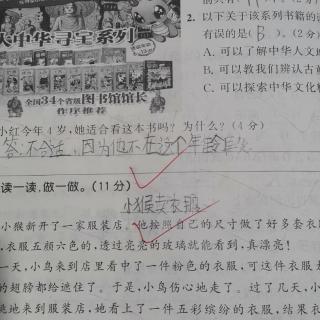 大中华寻宝系列
全国34个省级图书馆馆长
作序推荐
2. 以下关于该系列书籍的
有误的是( B )。(2分)
A. 可以了解中华人文
B. 可以教我们辨认古
C. 可以探索中华文化
小红今年4岁,她适合看这本书吗? 为什么? (4分)
答:不合适,因为他不在这个年龄
读一读,做一做。(11分)
小猴卖衣服
小猴新开了一家服装店。他按照自己的尺寸做了好多套衣
,衣服五颜六色的,透过亮亮的玻璃就能看到,真漂亮!
一天,小鸟来到店里看中了一件粉色的衣服,可这件衣服
的翅膀都给遮住了。于是,小鸟伤心地走了。过了几天,小
跳地来到服装店,她看上了一件五彩缤纷的衣服,结果衣